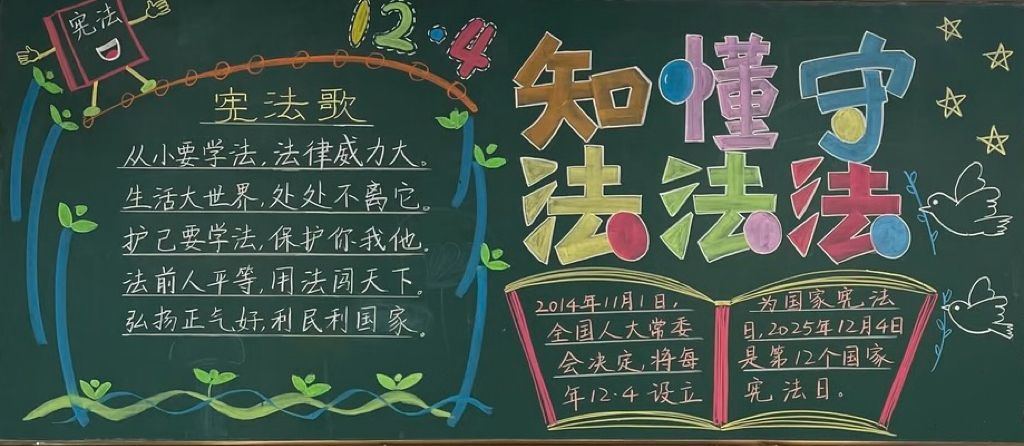 宪法
12·4
宪法歌
从小要学法,法律威力大。
生活大世界,处处不离它。
护己要学法,保护你我他。
法前人平等,用法闯天下。
弘扬正气好,利民利国家。
知懂守
法法法
2014年11月1日,
全国人大常委
会决定,将每
年12·4设立
为国家宪法
日,2025年12月4日
是第12个国家
宪法日。